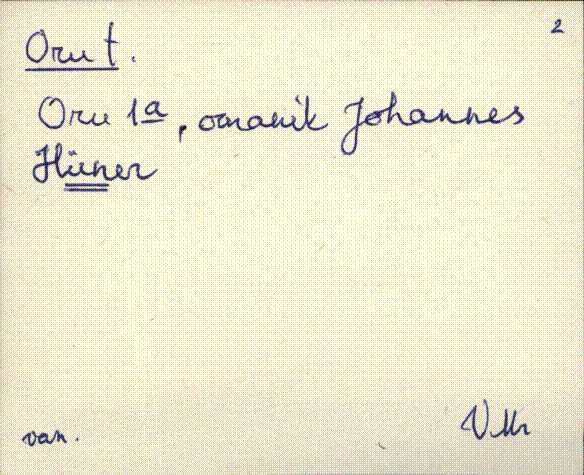 2
Oru t.
Oru 1a, omanik Johannes
Hüner
van. VMr